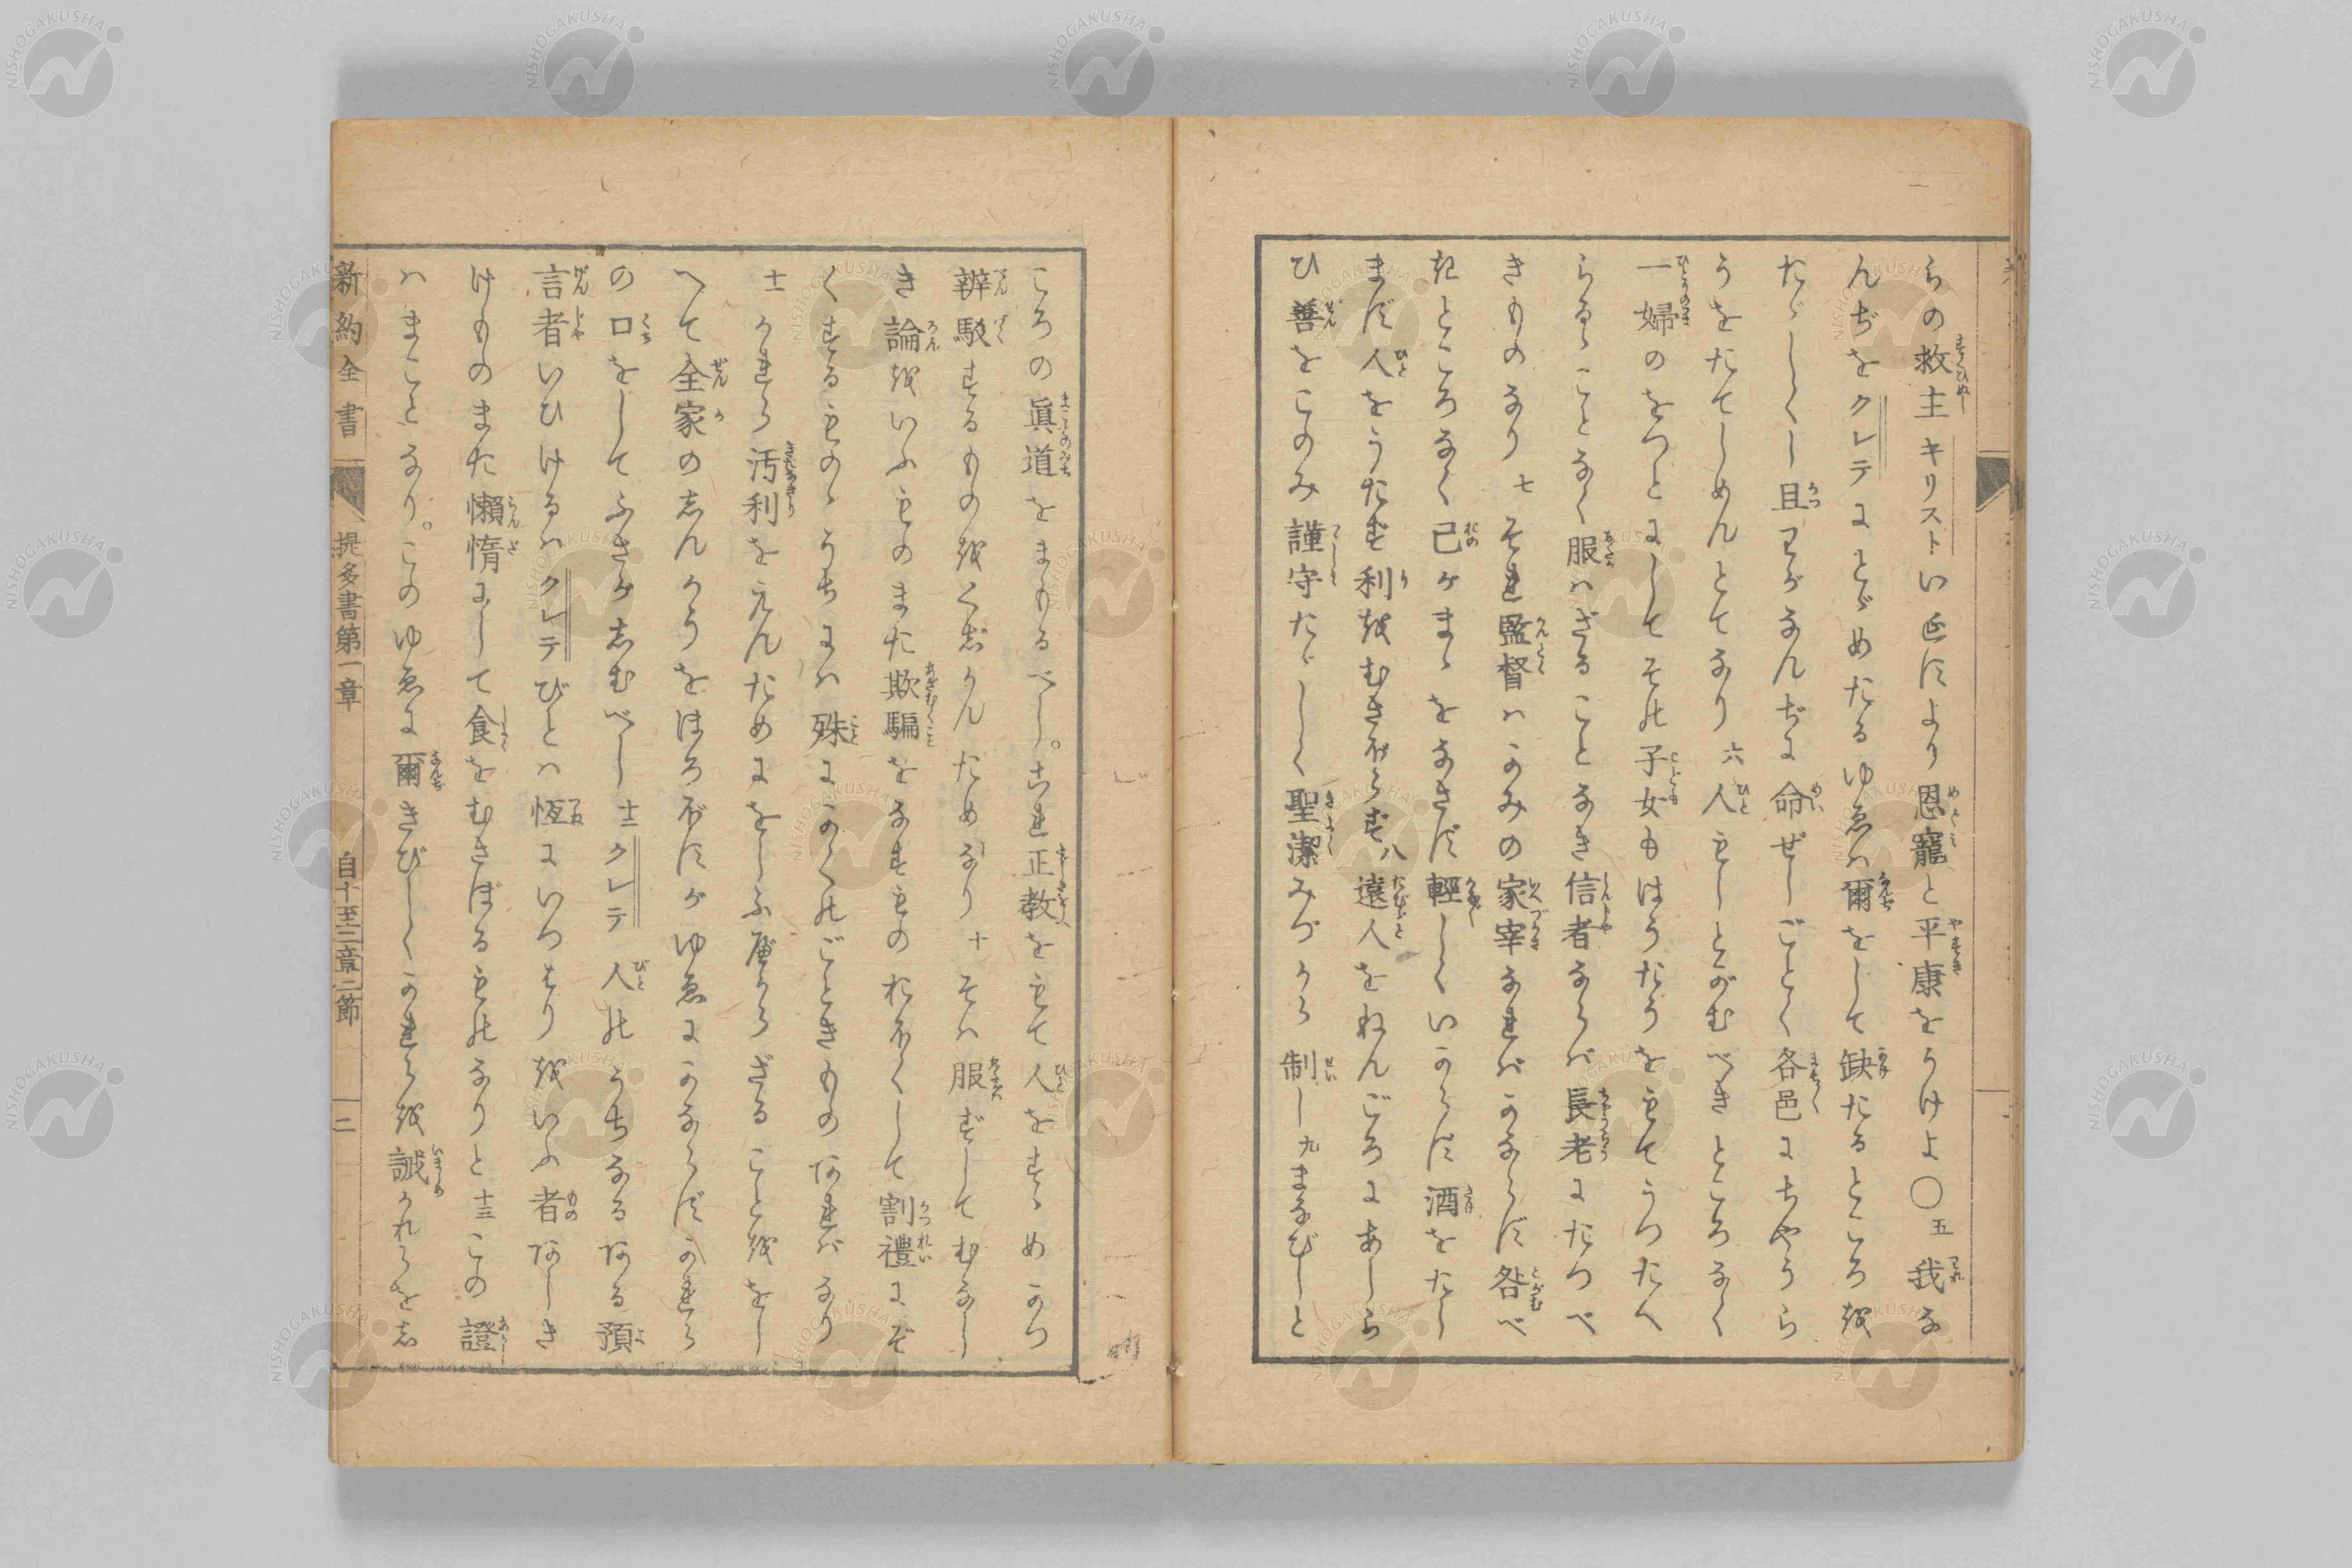 らの救主キリストイエスにより恩寵と平康をうけよ〇五我な
んぢをクレテにとゞめたるゆゑハ爾をして缺たるところを
たゞしくし且わがなんぢに命ぜしごとく各邑にちやうら
うをたてしめんとてなり六人もしとがむべきところなく
一婦のをつとにしてその子女もはうたうをもてうつたへ
らるゝことなく服ハざることなき信者ならバ長老にたつべ
きものなり七それ監督ハかみの家宰なれバかならず咎べ
きところなく己がまゝをなさず輕しくいからず酒をたし
まず人をうたず利をむさぼらず八遠人をねんごろにあしら
ひ善をこのみ謹守たゞしく聖潔みづから制し九まなびしと
ころの眞道をまもるべし。これ正教をもて人をすゝめかつ
辨駁するものをくじかんためなり十そハ服ずしてむなし
き論をいふものまた欺騙をなすものおほくして割禮にぞ
くするものゝうちにハ殊にかくのごときものあれバなり
十一かれら汚利をえんためにをしふ應からざることををし
へて全家のしんかうをほろぼすがゆゑにかならずかれら
の口をしてふさがしむべし十二クレテ人のうちなるある預
言者いひけるハクレテびとハ恆にいつはりをいふ者あしき
けものまた懶惰にして食をむさぼるものなりと十三この證
ハまことなり。このゆゑに爾きびしくかれらを誡かれらをし
新約全書 提多書第一章 自十至二章二節 二